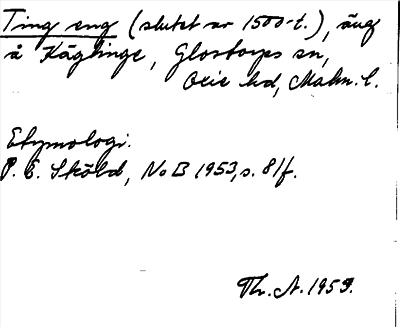 Ting eng (slutet av 1500-t.), äng
å Käglinge, Glostorps sn,
Oxie hd, Malm. l.
Etymologi.
P. E. Sköld, NoB 1953, s. 81f.
Th. A. 1959.